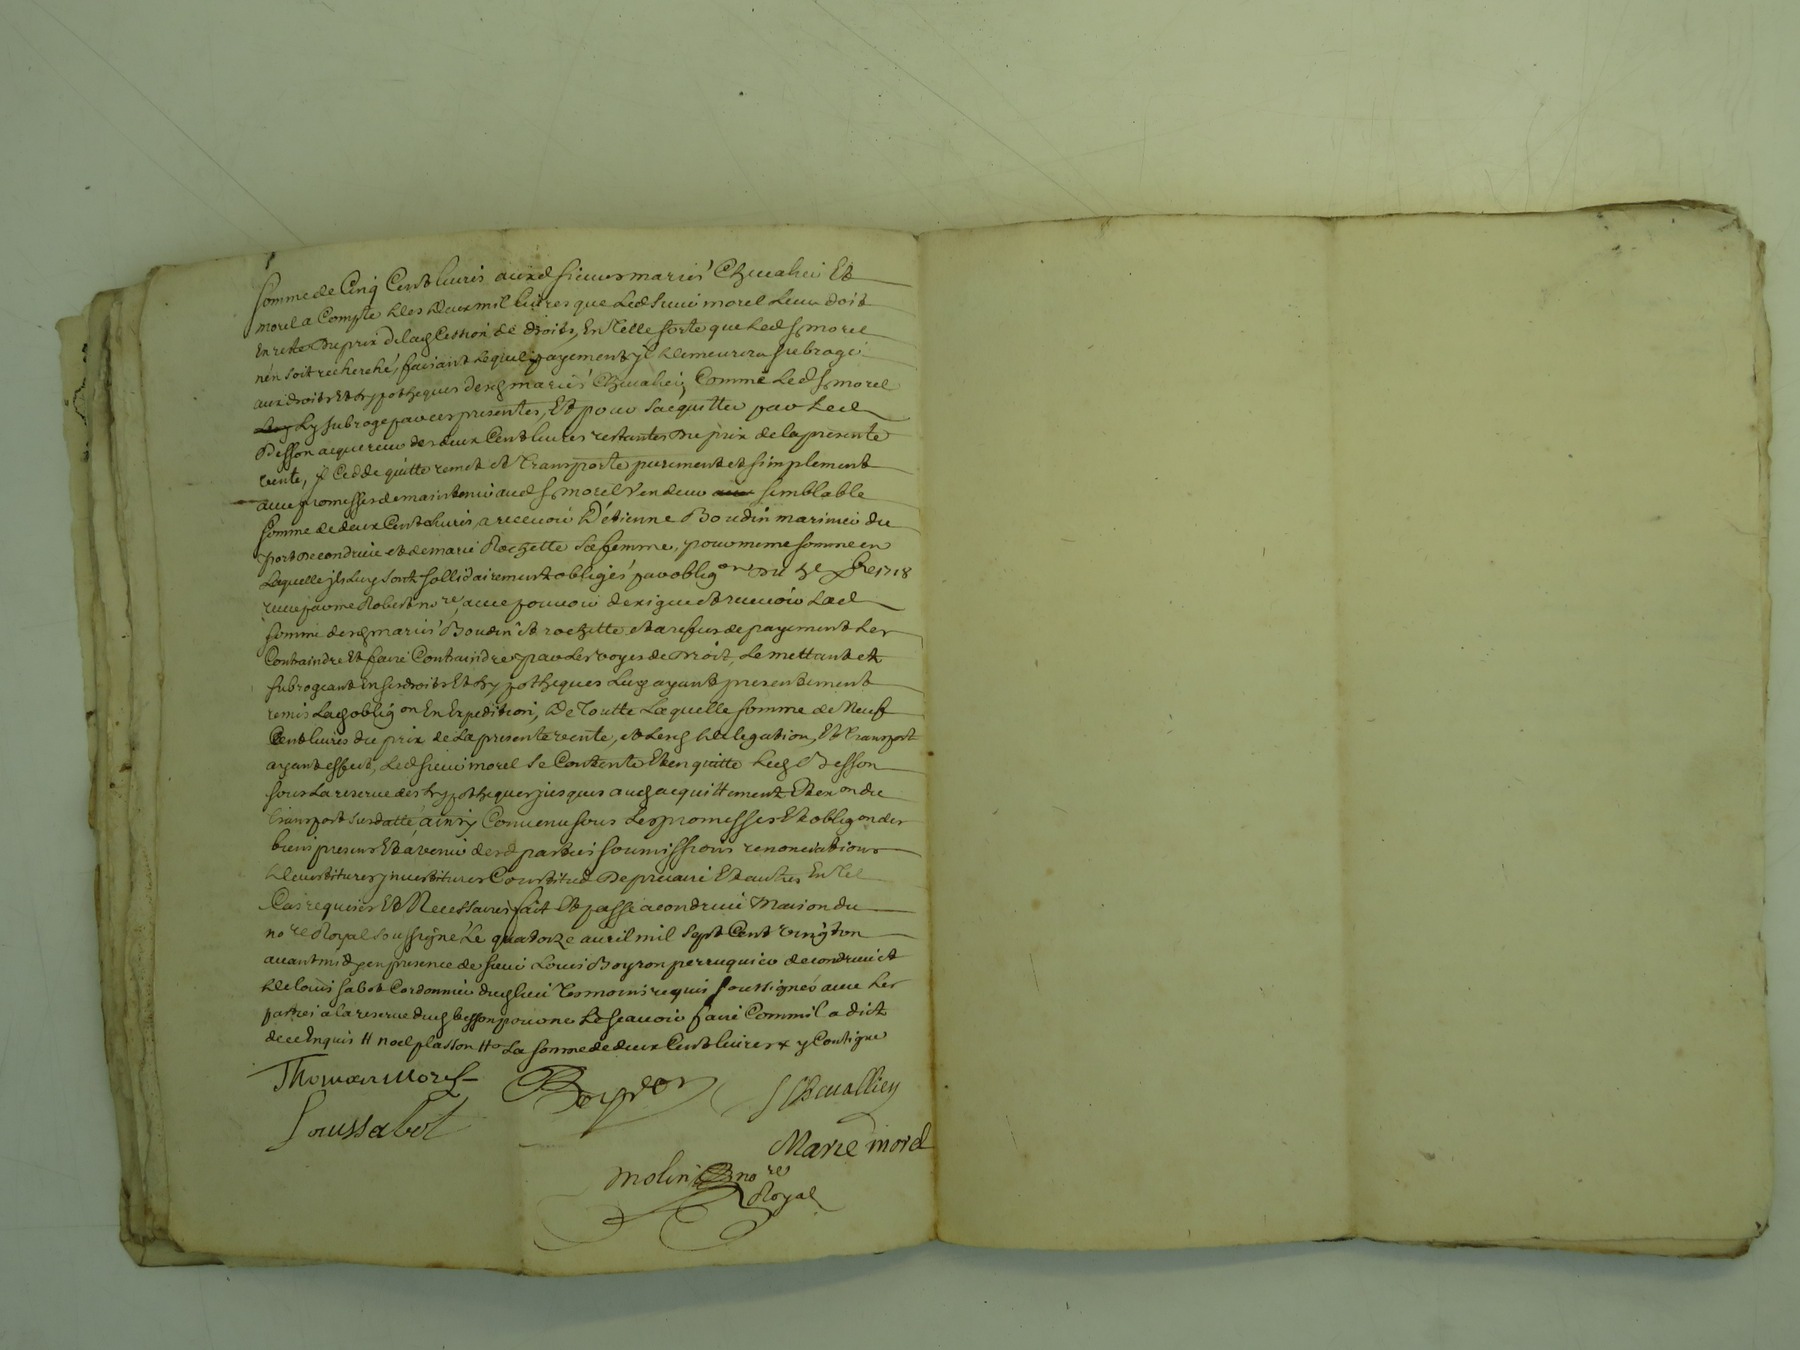 somme de Cinq Cent livres auxd sieurs mariés Chevalier Et
morel a Compte des deux mil livres que Led sieur morel Leur doit
En reste du prix de lad Cession de droits, En telle sorte que Led sr morel
n'en soit recherché, faisant lequel payement jl demeurera subrogé
aux droits Et hypotheques desd mariés Chevalier, Comme Led sr morel
Ly subroge par ces presentes, Et pour s'acquitter par Led
Besson acquereur des deux Cent livres restantes du prix de la presente
vente, jl Cedde quitte remet et transporte purement et simplement
avec promesses de maintenir aud sr morel vendeur semblable
somme de deux Cent livres a recevoir d'étienne Boudin marinier du
port de condrieu et de marie Rochette sa femme, pour meme somme en
Laquelle jls Luy sont sollidairement obligés par oblig.on du 1718
receue par me Robert no.re, avec pouvoir d'exiger et recevoir Lad
somme desd mariés Boudin et rochette et a refus de payement Les
Contraindre Et faire Contraindre par Les voyes de Droit, Le mettant et
subrogeant en ses droits Et hypotheques Luy ayant presentement
remis Lad oblig.on En Expedition, De Toutte Laquelle somme de Neuf
Cent livres du prix de La presente vente, et lesd delegation, Et transport
ayant effect, Led sieur morel se Contente Et en quitte Led Besson
sous La reserve des hypotheques jusques aud acquittement Et ex.on du
transport susdatté, ainsy Convenu sous Les promesses Et oblig.on des
biens presens Et avenir desd parties soumissions renonciations
devestitures jnvestitures Constitut De precaire Et autres En tel
Cas requises Et Necessaires fait Et passé a condrieu Maison du
no.re Royal soussigné Le quatorze avril mil sept Cent vingt un
avant midy en presence de sieur Louis Boyron perruquier de condrieu et
de louis sabot Cordonnier dud lieu Tesmoins requis soussignés avec Les
parties a la reserve dud besson pour ne Le scavoir faire Comm'il a dict
de ce Enquis # noel plasson # La somme de deux Cent livres x y Contigue
Thomas Morel
Boyron
Chevallier
Louis sabot
Marie morel
molin no.re
Royal